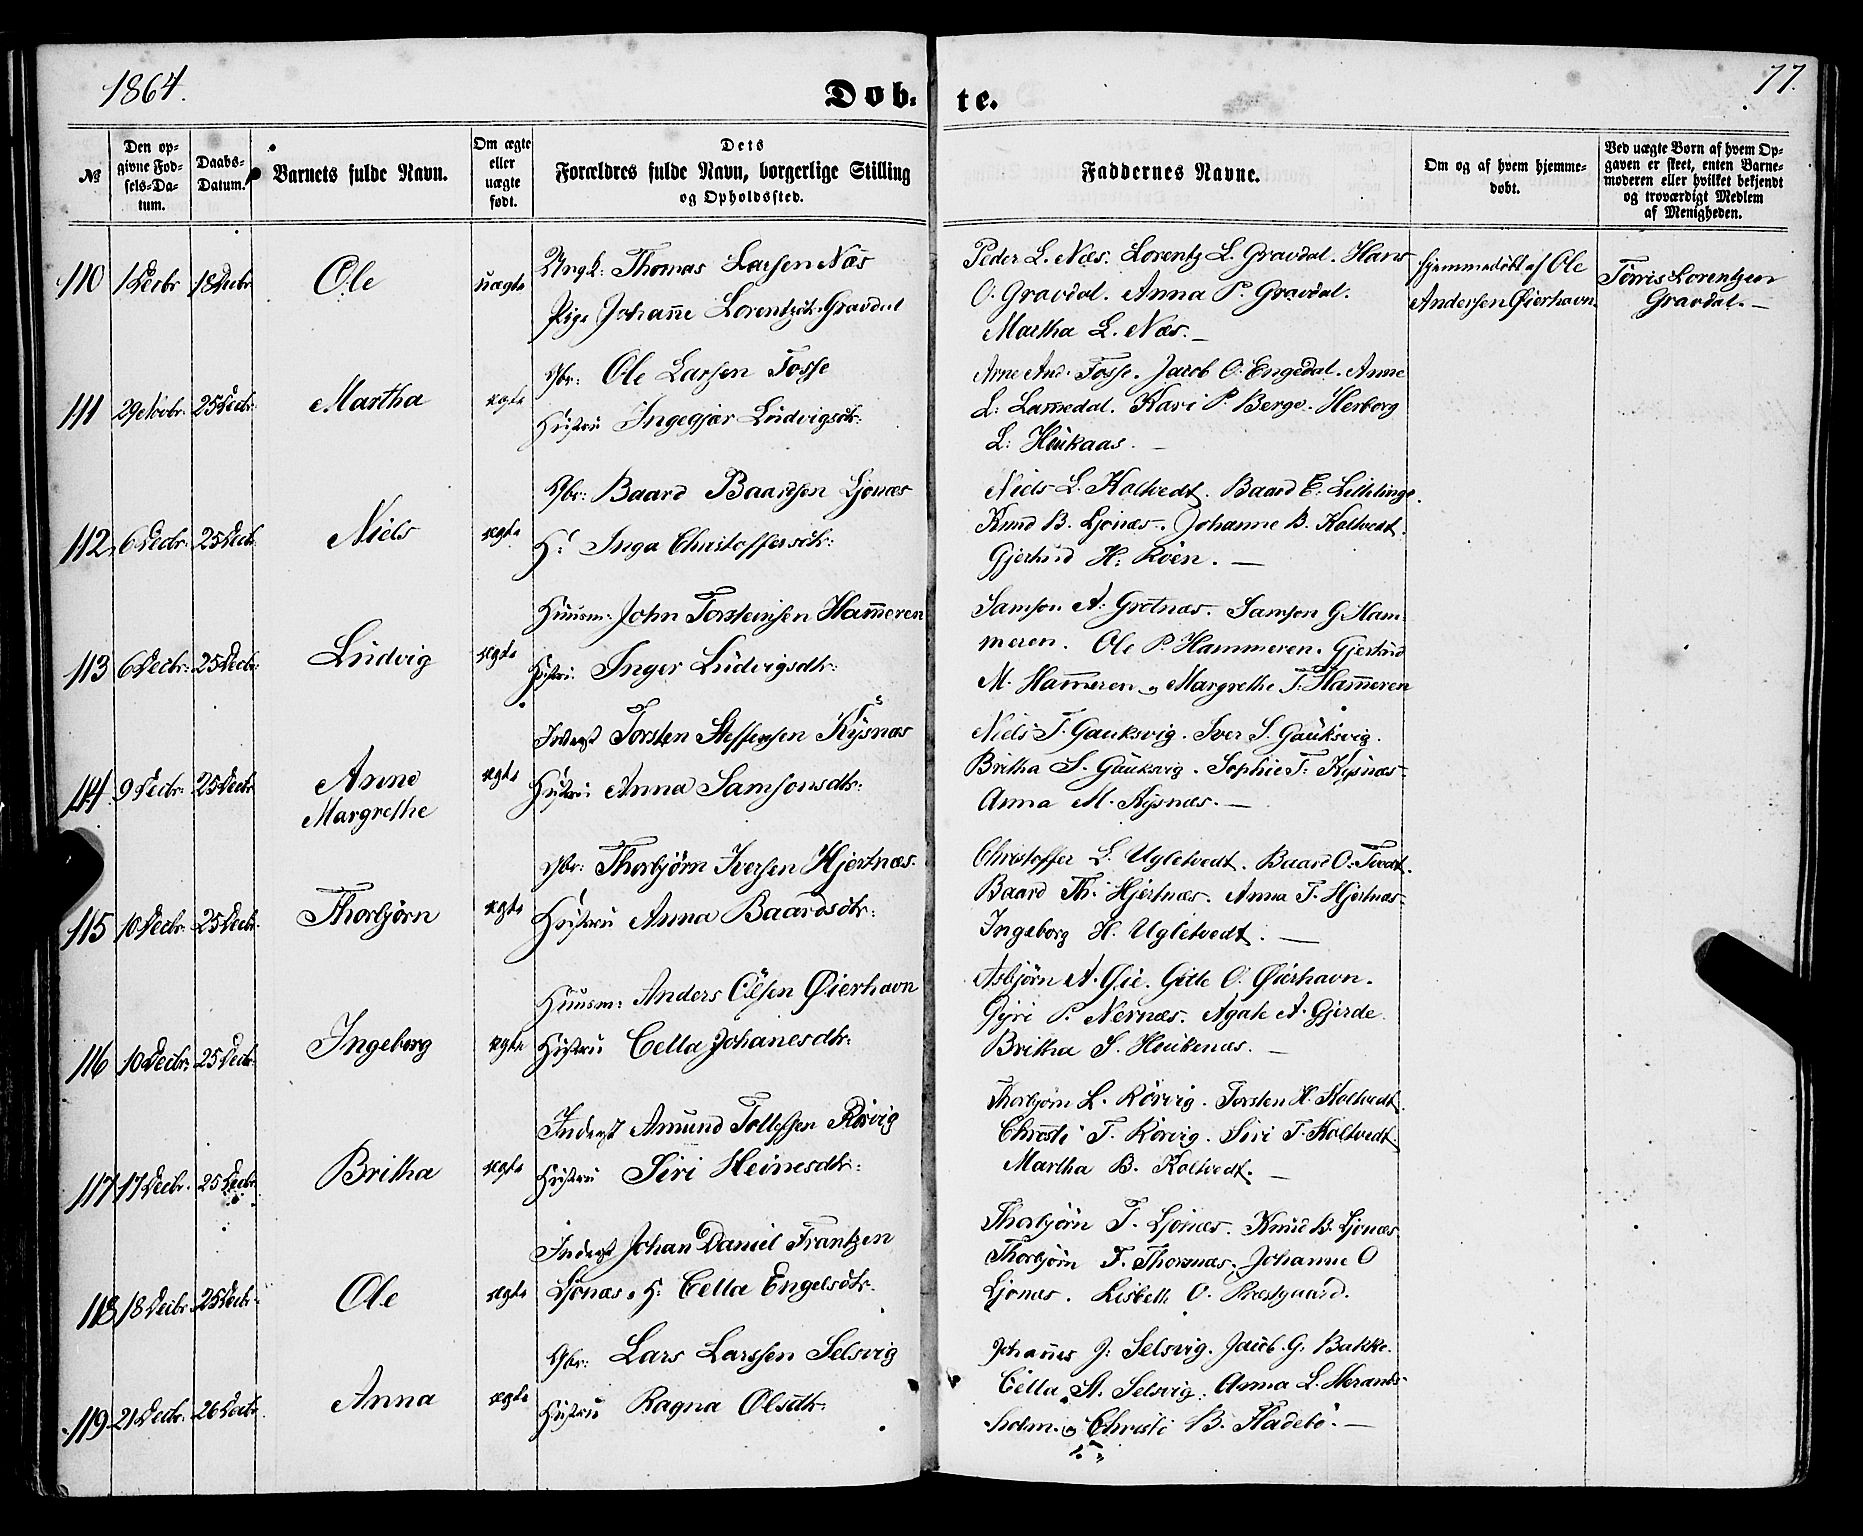 1864.
77.
Døb-
te.
№
Den op-
givne Fød-
sels-Da-
tum.
Daabs-
Datum.
Barnets fulde Navn.
Om ægte
eller
uægte
født.
Dets
Forældres fulde Navn, borgerlige Stilling
og Opholdssted.
Faddernes Navne.
Om og af hvem hjemme-
døbt.
Ved uægte Børn af hvem Op-
gaven er skeet, enten Barne-
moderen eller hvilket bekjendt
og troværdigt Medlem
af Menigheden.
110 1 Decbr 18 Decbr Ole uægte
Ungk: Thomas Larsen Næs
Pige Johan̄e Lorentzdtr Gravdal
Peder L. Næs. Lorentz L. Gravdal. Hans
O. Gravdal. Anna P. Gravdal.
Martha L. Næs. —
Hjemmedøbt af Ole
Andersen Øierhavn.
Tørris Lorentzen
Gravdal. —
111 29 Novbr. 25 Decbr. Martha ægte
Gbr: Ole Larsen Fosse
Hustru Ingegjær Ludvigsdtr:
Arne And. Fosse. Jacob O. Engedal. Anne
L: Lammedal. Kari P. Berge. Herborg
L: Heukaas. —
112. 6 Decbr: 25 Decb. Niels ægte
Gbr: Baard Baardsen Ljonæs
H: Inga Christoffersdtr:
Niels L. Koltvedt. Baard E. Lillelinge.
Knud B. Ljonæs. Johanne B. Koltvedt.
Gjertrud H. Røen. —
113 6 Decbr: 25 Decbr: Ludvig ægte
Huusm: John Torsteinsen Ham̄eren
Hustru: Inger Ludvigsdtr:
Samson A. Grotnæs. Samson G. Ham-
meren. Ole P. Hammeren. Gjertrud
M. Ham̄eren og Margrethe T. Ham̄eren
114. 9 Decbr: 25 Decbr Anne
Margrethe ægte
Inderst Torsten Steffensen Kysnæs
Hustru Anna Samsonsdtr:
Niels T. Gauksvig. Iver S. Gauksvig.
Britha S. Gauksvig. Sophie T. Kysnæs.
Anna M. Kysnæs. —
115 10 Decbr. 25 Decbr. Thorbjørn ægte
Gbr: Thorbjørn Iversen Hjertnæs.
Hustru Anna Baardsdtr:
Christoffer L. Ugletvedt. Baard O. Tvedt.
Baard Th. Hjertnæs. Anna T. Hjertnæs.
Ingeborg H. Ugletvedt. —
116 10 Decbr: 25 Decbr. Ingeborg ægte
Huusm: Anders Olsen Øierhavn
Hustru Cella Johanesdtr:
Asbjørn A. Øie. Gitle O. Øierhavn.
Gyri P. Nernæs. Agate A. Gjerde.
Britha S. Heukenæs. —
117 17 Decbr. 25 Decbr. Britha ægte
Inderst Amund Tollefsen Rørvig
Hustru Siri Heinesdtr:
Thorbjørn L. Rørvig. Torsten H. Koltvedt.
Christi T. Rørvig. Siri T. Koltvedt.
Martha B. Koltvedt. —
118 18 Decbr. 25 Decbr. Ole ægte
Inderst Johan Daniel Frantzen
Ljonæs. H: Cella Engelsdtr.
Thorbjørn T. Ljonæs. Knud B. Ljonæs.
Thorbjørn T. Thorsnæs. Johanne O
Ljonæs. Lisbeth O. Prestgaard.
119. 21 Decbr. 26 Decbr. Anna ægte
Gbr: Lars Larssen Selsvig
Hustru Ragna Olsdtr.
Johan̄es J: Selsvig. Jacob G. Bakke.
Cella A. Selsvig. Anna L. Herands-
holm. og Christi B. Fladebø. —